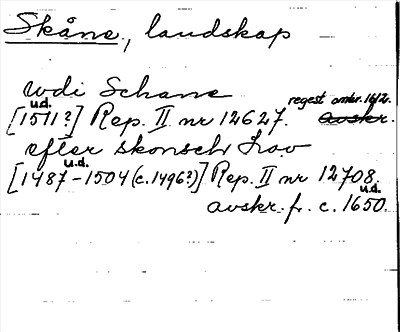 Skåne, landskap
udi Schane
u.d. regest omkr. 1612.
[1511?] Rep. II nr 12627. avskr.
efter skonsch Lov
u.d.
[1487-1504 (c. 1496?)] Rep. II nr 12708.
u.d.
avskr. fr. c. 1650.